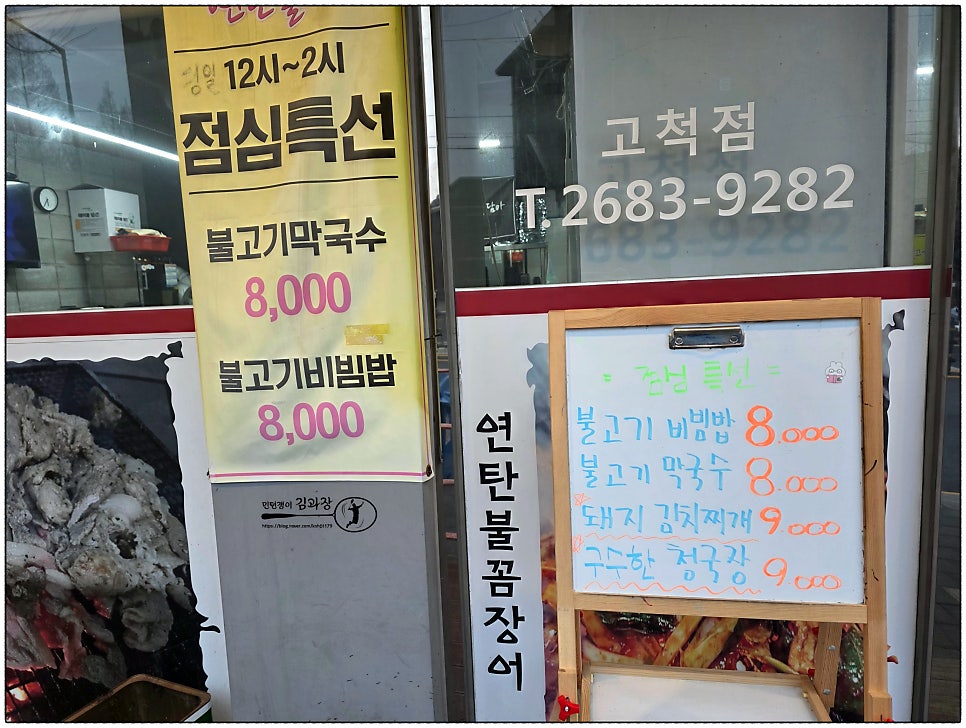 연탄불
평일 12시~2시
점심특선
불고기막국수
8,000
불고기비빔밥
8,000
민턴갱이 김과장
고척점
T.2683-9282
연탄불꼼장어
= 점심 특선 =
불고기 비빔밥 8.000
불고기 막국수 8.000
돼지 김치찌개 9.000
구수한 청국장 9.000